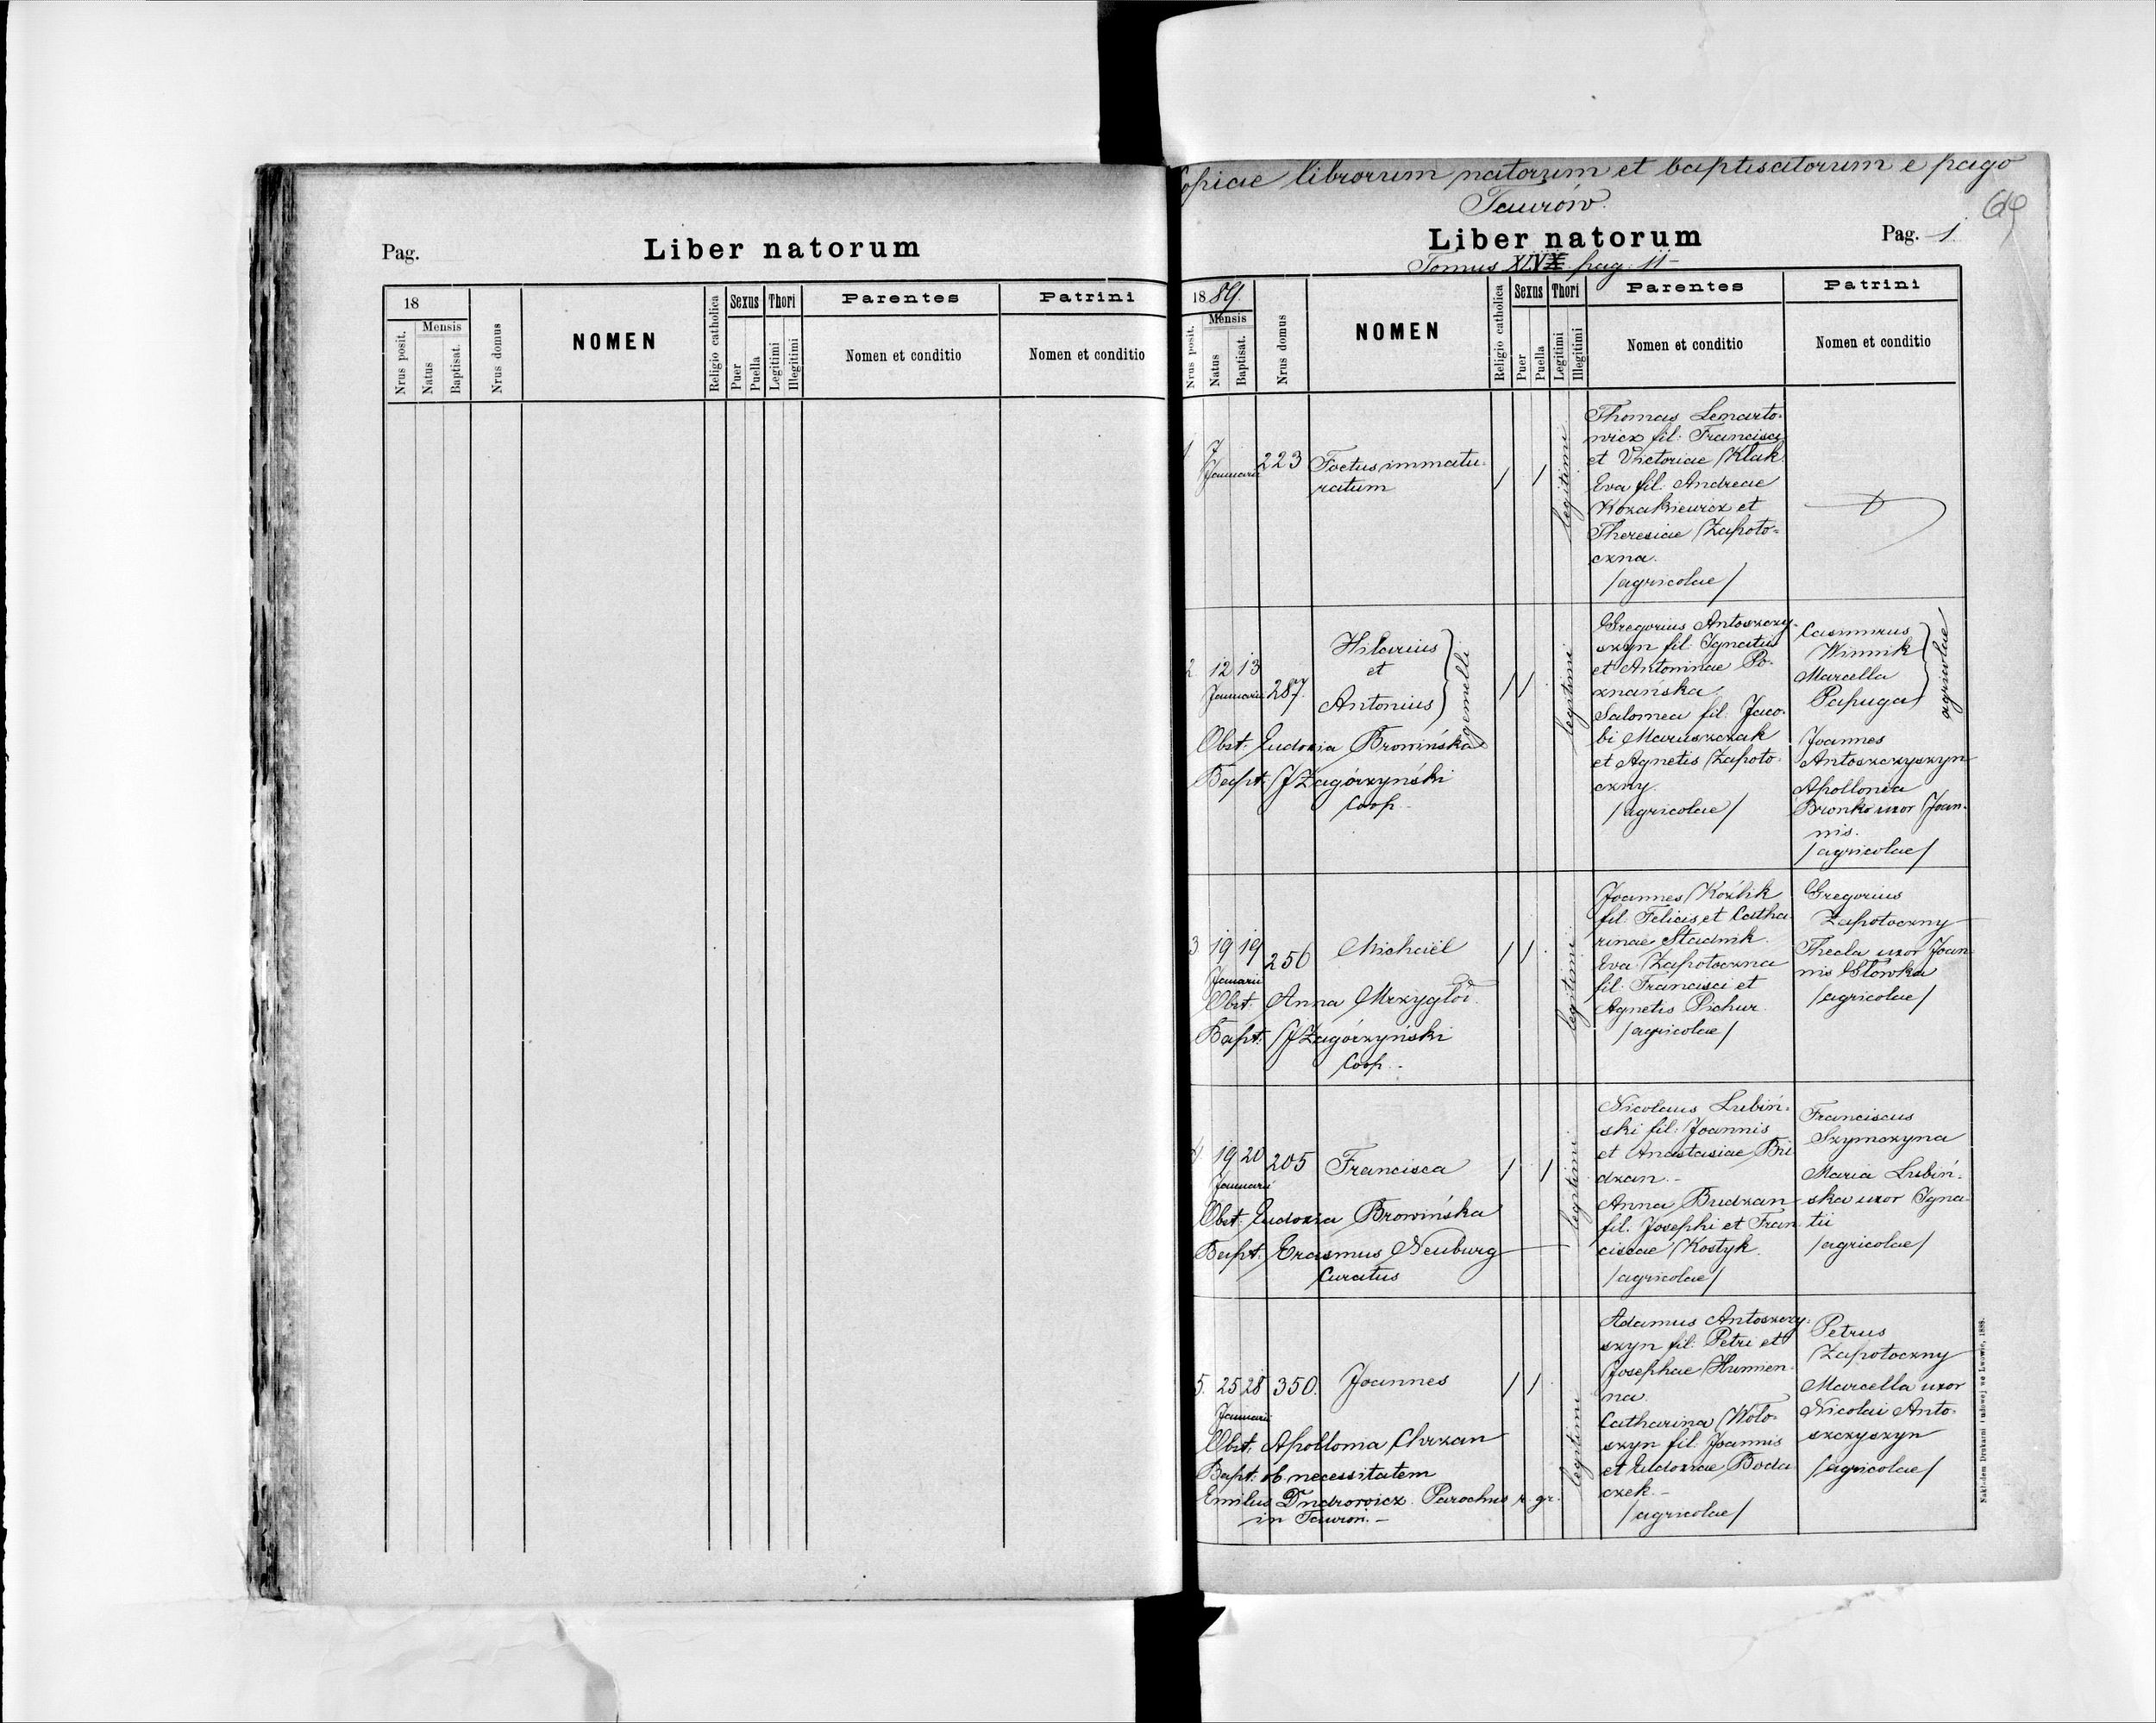 Pag.
Liber natorum
18
Mensis
Nrus posit.
Natus
Baptisat.
Nrus domus
NOMEN
Religio catholica
Sexus
Puer
Puella
Thori
Legitimi
Illegitimi
Parentes
Nomen et conditio
Patrini
Nomen et conditio
opiae librorum natorum et baptisatorum e pago
Taurów.
Liber natorum
Pag. 1.
Tomus XLV pag. 11
1889.
Mensis
Nrus posit.
Natus
Baptisat.
Nrus domus
NOMEN
Religio catholica
Sexus
Puer
Puella
Thori
Legitimi
Illegitimi
Parentes
Nomen et conditio
Patrini
Nomen et conditio
1 7 223
Januarii
Foetus immatu-
ratum
/ /
legitimi
Thomas Lenarto-
wicz fil: Francisci
et Victoriae Klak.
Eva fil: Andreae
Kozakiewicz et
Theresiae Zapoto-
czna.
/agricolae/
2 12 13 287.
Januarii
Hilarius
et
Antonius
gemelli
/ /
legitimi
Obst: Eudoxia Browińska
Bapt: J Zagórzyński
Coop.
Gregorius Antoszczy-
szyn fil: Ignatii
et Antoninae Po-
znańska
Salomea fil: Jaco-
bi Maruszczak
et Agnetis Zapoto-
czny.
/agricolae/
Casimirus
Winnik
Marcella
Papuga
agricolae
Joannes
Antoszczyszyn
Apollonia
Bronko uxor Joan-
nis.
/agricolae/
3 19 19 256
Januarii
Michaël
/ /
legitimi
Obst: Anna Mrzygłód.
Bapt: J Zagórzyński
Coop.
Joannes Koźlik
fil: Felicis et Catha-
rinae Stadnik.
Eva Zapotoczna
fil: Francisci et
Agnetis Pichur.
/agricolae/
Gregorius
Zapotoczny
Thecla uxor Joan-
nis Słowka
/agricolae/
4 19 20 205
Januarii
Francisca
/ /
legitimi
Obst: Eudoxia Browińska
Bapt: Erasmus Neuburg
Curatus
Nicolaus Lubiń-
ski fil: Joannis
et Anastasiae
dzan.
Anna Budzan
fil: Josephi et Fran-
ciscae Kostyk.
/agricolae/
Franciscus
Szymczyna
Maria Lubiń-
ska uxor Igna-
tii
/agricolae/
5. 25 28 350.
Januarii
Joannes
/ /
legitimi
Obst: Apollonia Chrzan
Bapt: ob necessitatem
Emilus Parochus r. gr.
in Taurow.
Adamus Antoszczy-
szyn fil: Petri et
Josephae Humien-
na.
Catharina Woło-
szyn fil: Joannis
et Eudoxiae Boda-
czek.
/agricolae/
Petrus
Zapotoczny
Marcella uxor
Nicolai Anto-
szczyszyn
/agricolae/
Nakładem Drukarni Ludowej we Lwowie, 1888.